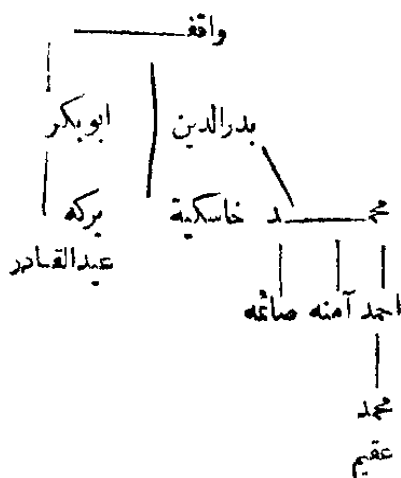 واقف
بدرالدين ابوبكر
محمد خاسكية بركه
عبدالقادر
احمد آمنه صائمه
محمد
عقيم